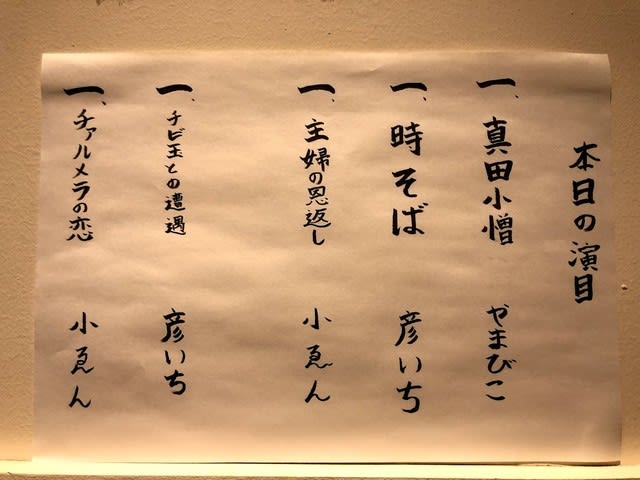 本日の演目
一、真田小僧 やまびこ
一、時そば 彦いち
一、主婦の恩返し 小ゑん
一、チビ玉との遭遇 彦いち
一、チァルメラの恋 小ゑん